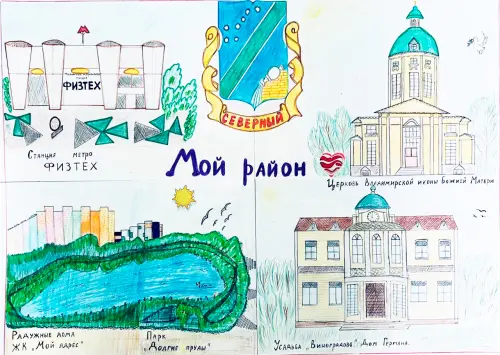 М
ФИЗТЕХ
СЕВЕРНЫЙ
Станция метро
ФИЗТЕХ
Мой район
Церковь Владимирской иконы Божией Матери
Радужные дома
ЖК „Мой адрес"
Парк
„Долгие пруды"
Усадьба „Виноградово" Дом Германа.